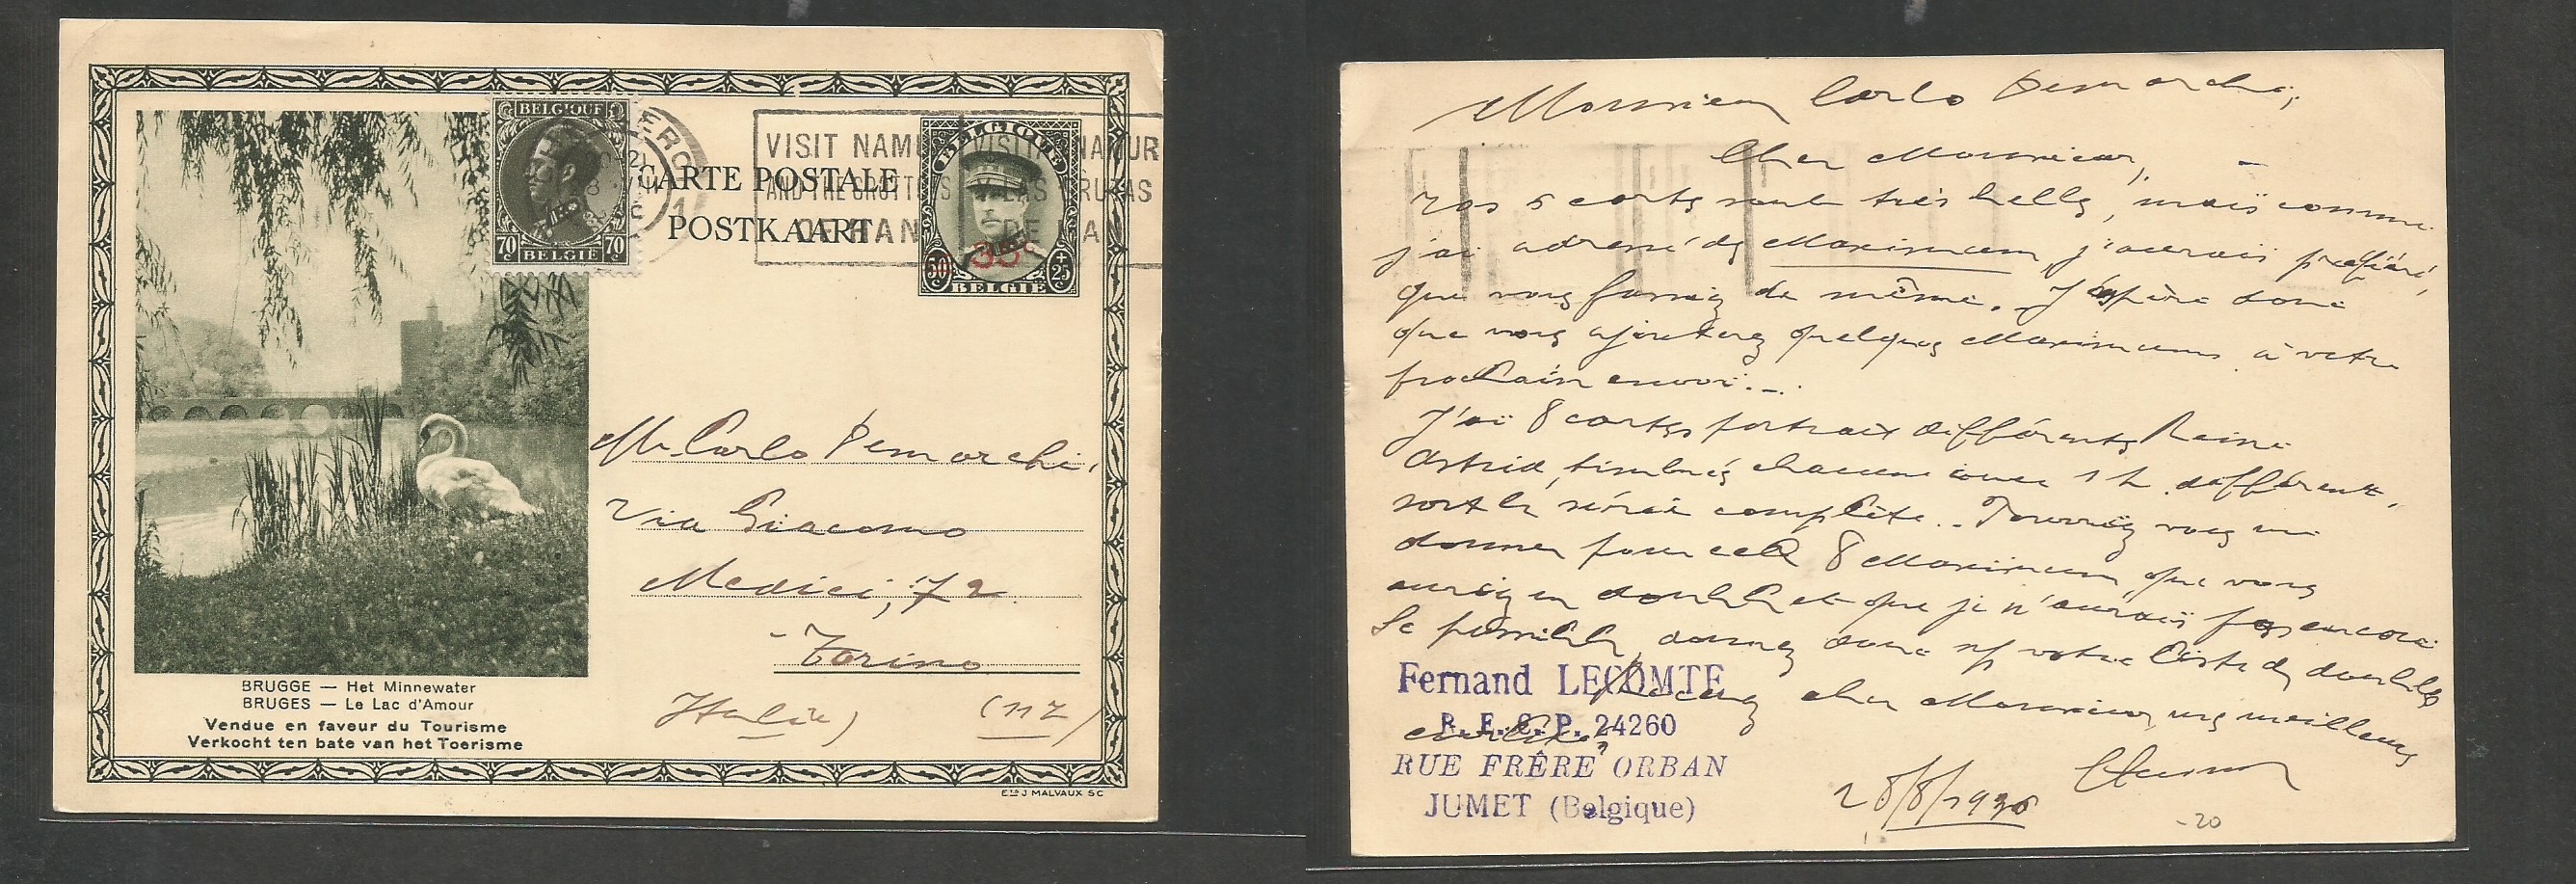 BELGIQUE
70 70
BELGIE
CHARLEROI
1
VISIT NAMUR
AND THE GROTTOES
DE HAN
VISIT NAMUR
LAS GRUTAS
DE HAN
CARTE POSTALE
POSTKAART
BELGIQUE
35c
50 + 25
BELGIË
Mr Carlo Demarchi,
Via Giacomo
Medici, 72
- Torino
Italie) (112)
BRUGGE — Het Minnewater
BRUGES — Le Lac d'Amour
Vendue en faveur du Tourisme
Verkocht ten bate van het Toerisme
Ets J MALVAUX SC
Monsieur Carlo Demarchi,
Cher Monsieur,
Vos 5 cartes sont très belles, mais comme
j'ai adressé des Maximum j'aurais préféré,
que vous fassiez de même. J'espère donc
que vous ajouterez quelques Maximums à votre
prochain envoi.
J'ai 8 cartes portrait différentes Reine
Astrid, timbrées chacune avec 1 t. différent,
soit la série complète. Pourriez vous me
donner pour cela 8 Maximum que vous
auriez en double et que je n'aurais pas encore
Si possible, donnez donc votre liste de doubles
Recevez cher Monsieur, mes meilleures
Fernand LECOMTE
R.E.C.P. 24260
RUE FRÊRE ORBAN
JUMET (Belgique)
28/8/1936
-20